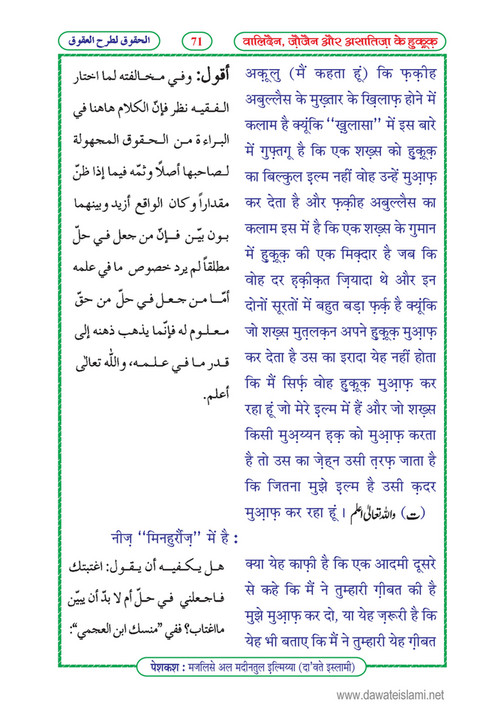 الحقوق لطرح العقوق
71
वालिदैन, ज़ौजैन और असातिज़ा के हुक़ूक़
أقول: وفي مخالفته لما اختار
الفقيه نظر فإنّ الكلام هاهنا في
البراءة من الحقوق المجهولة
لصاحبها أصلًا وثمّه فيما إذا ظنّ
مقداراً وكان الواقع أزيد وبينهما
بون بيّن فإنّ من جعل في حلّ
مطلقاً لم يرد خصوص ما في علمه
أمّا من جعل في حلّ من حقّ
معلوم له فإنّما يذهب ذهنه إلى
قدر ما في علمه، والله تعالى
أعلم.
अक़ूलु (मैं कहता हूं) कि फ़क़ीह
अबुल्लैस के मुख़्तार के ख़िलाफ़ होने में
कलाम है क्यूंकि ‘‘ख़ुलासा’’ में इस बारे
में गुफ़्तगू है कि एक शख़्स को हुक़ूक़
का बिल्कुल इल्म नहीं वोह उन्हें मुआ़फ़
कर देता है और फ़क़ीह अबुल्लैस का
कलाम इस में है कि एक शख़्स के गुमान
में हुक़ूक़ की एक मिक़्दार है जब कि
वोह दर ह़क़ीक़त ज़ियादा थे और इन
दोनों सूरतों में बहुत बड़ा फ़र्क़ है क्यूंकि
जो शख़्स मुत़लक़न अपने हुक़ूक़ मुआ़फ़
कर देता है उस का इरादा येह नहीं होता
कि मैं सिर्फ़ वोह हुक़ूक़ मुआ़फ़ कर
रहा हूं जो मेरे इल्म में हैं और जो शख़्स
किसी मुअ़य्यन ह़क़ को मुआ़फ़ करता
है तो उस का ज़ेह्न उसी त़रफ़ जाता है
कि जितना मुझे इल्म है उसी क़दर
मुआ़फ़ कर रहा हूं। والله تعالیٰ اعلم (ت)
नीज़ ‘‘मिनहुर्रौज़’’ में है :
هل يكفيه أن يقول: اغتبتك
فاجعلني في حلّ أم لا بدّ أن يبيّن
مااغتاب؟ ففي ”منسك ابن العجمي“:
क्या येह काफ़ी है कि एक आदमी दूसरे
से कहे कि मैं ने तुम्हारी ग़ीबत की है
मुझे मुआ़फ़ कर दो, या येह ज़रूरी है कि
येह भी बताए कि मैं ने तुम्हारी येह ग़ीबत
पेशकश : मजलिसे अल मदीनतुल इल्मिय्या (दा'वते इस्लामी)
www.dawateislami.net